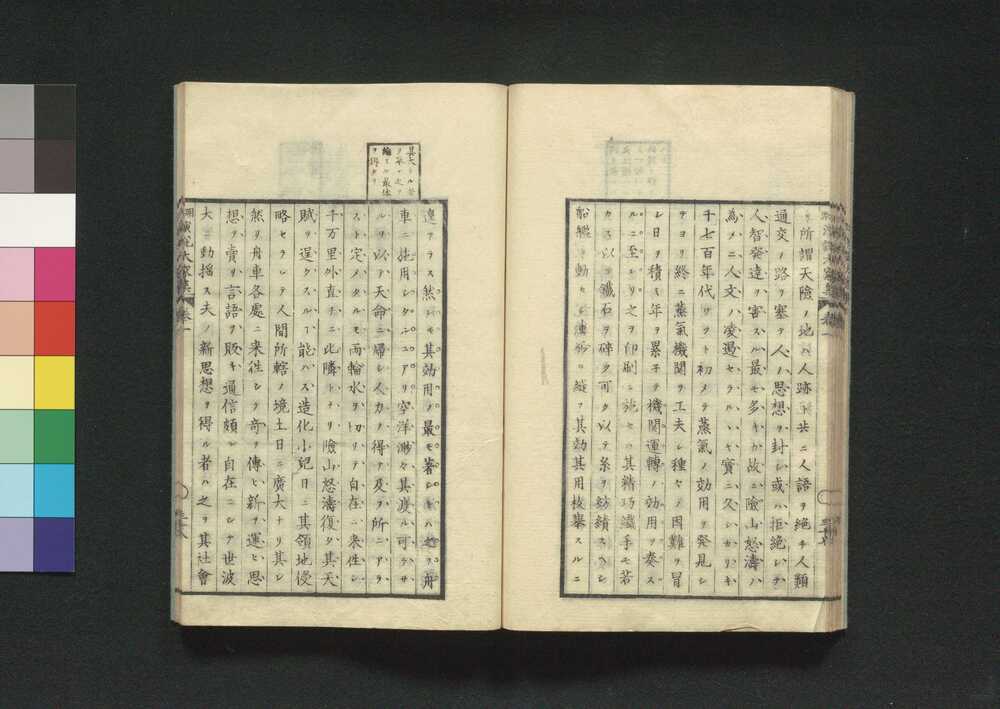 所謂天險ノ地ハ人跡共ニ人語ヲ絶チ人類
通交ノ路ヲ塞テ人ノ思想ヲ封シ或ハ拒絶シテ
人智發達ヲ害スル最モ多キカ故ニ險山怒濤ハ
為メニ人文ノ凌過セラルヽヿ實ニ久シカリキ
千七百年代ワット初メテ蒸氣ノ効用ヲ發見シ
テヨリ終ニ蒸氣機関ヲ工夫シ種々ノ困難ヲ冒
シ日ヲ積ミ年ヲ累子テ機関運轉ノ効用ヲ奏ス
ルニ至レリ之ヲ印刷ニ施セハ其精巧纖手モ若
カス以テ鐵石ヲ碎ク可ク以テ糸ヲ紡績スヘシ
船艦ヲ動セシ 縦ヲ其効其用枚擧スルニ
遑アラス然レモ其効用ノ最モ著シキハ之ヲ舟
車ニ施用シタルニアリ空洋渺々其度ル可ラサ
ルヲ以テ天命ニ歸シ人力ノ得テ及フ所ニアラ
スト定メタルモ両輪水ヲ切リテ自在ニ来往シ
千万里外直チニ比隣トナリ險山怒濤復タ其天
賦ヲ逞クスルヿ能ハス造化小兒日ニ其領地侵
略セラレテ人間所轄ノ境土日ニ廣大トナリ其レ
然リ舟車各處ニ来往シ奇ヲ傳ヒ新ヲ運ヒ思
想ヲ賣リ言語ヲ販キ通信頗ル自在ニシテ世波
大ニ動搖ス夫ノ新思想ヲ得ル者ハ之ヲ其社會
演説大家集
卷一